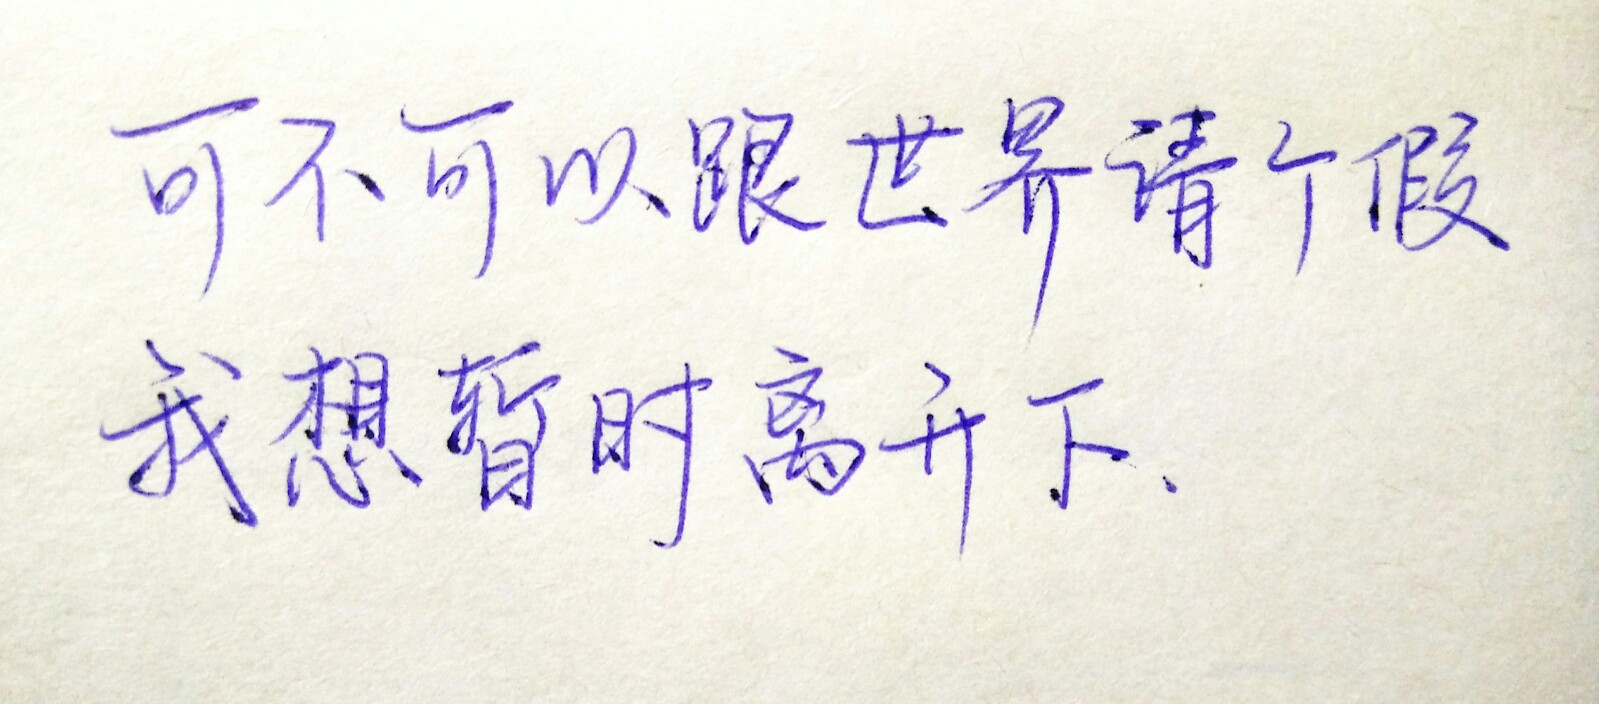 可不可以跟世界请个假
我想暂时离开下、